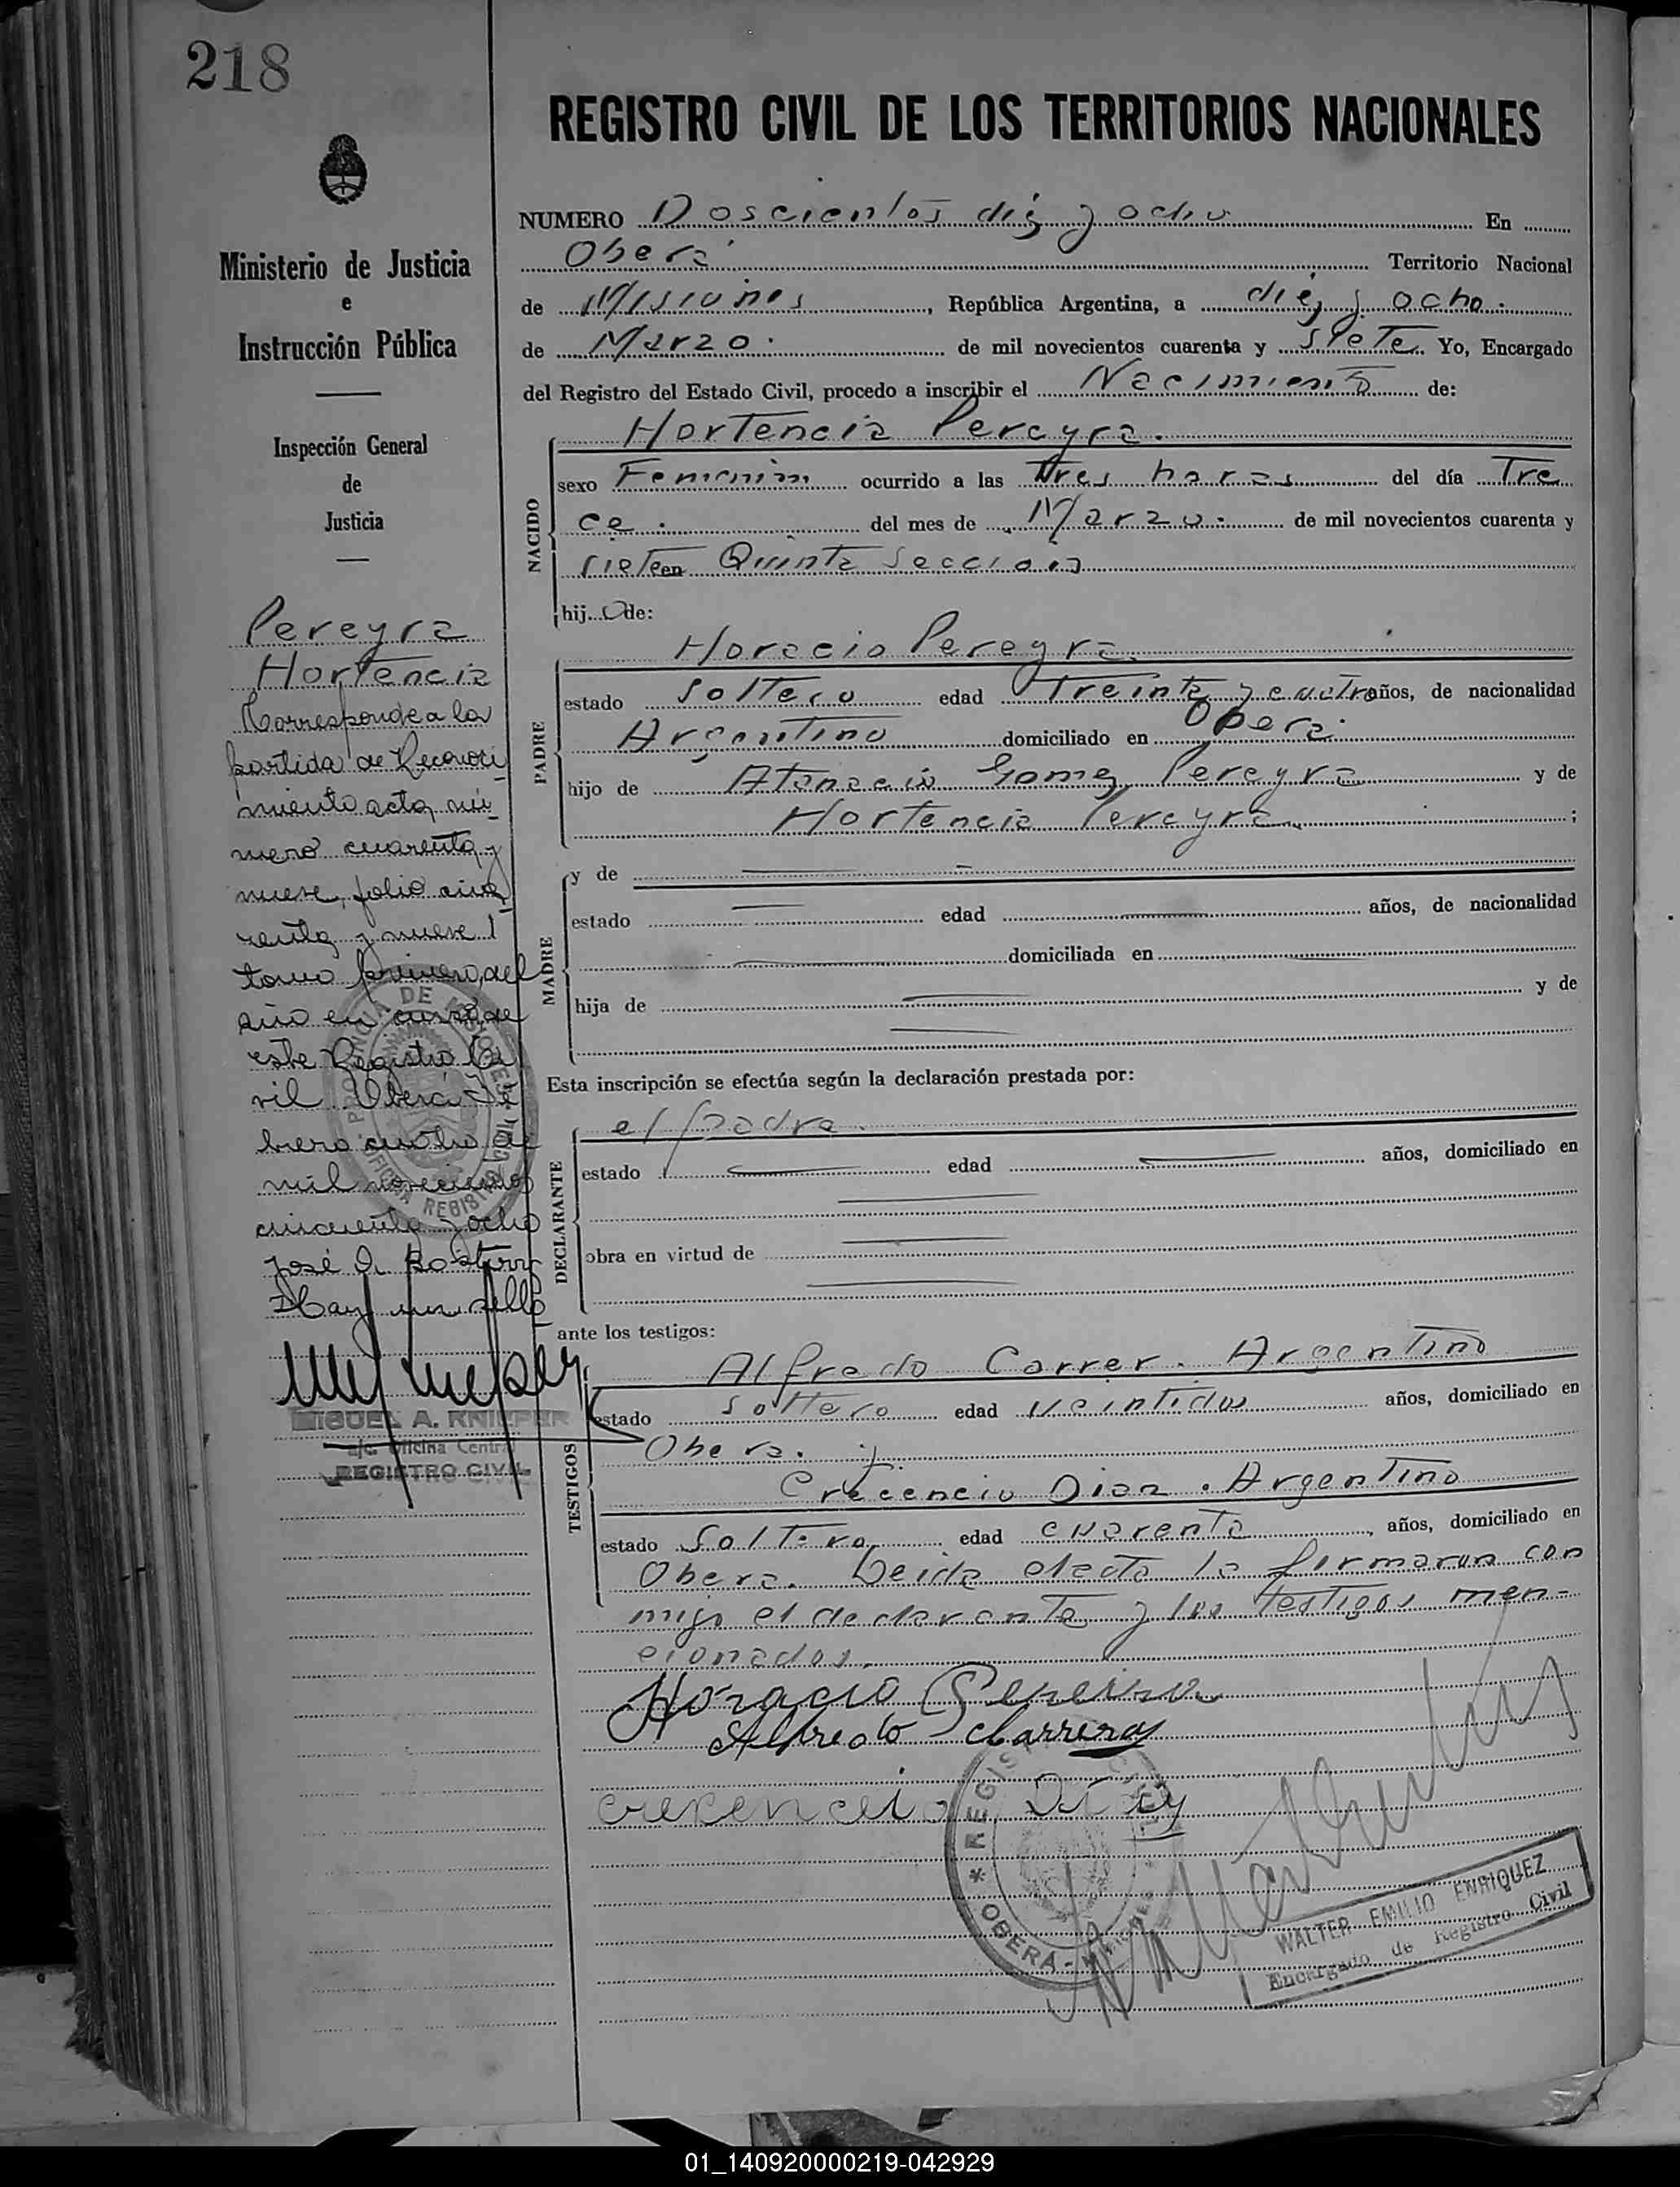 218
REGISTRO CIVIL DE LOS TERRITORIOS NACIONALES
Ministerio de Justicia
e
Instrucción Pública
Inspección General
de
Justicia
NUMERO Doscientos diez y ocho En
Obera Territorio Nacional
de Misiones, República Argentina, a diez y ocho.
de Marzo. de mil novecientos cuarenta y siete. Yo, Encargado
del Registro del Estado Civil, procedo a inscribir el Nacimiento de:
NACIDO
Hortencia Pereyra.
sexo Femenino ocurrido a las Tres horas del día Tre
ce. del mes de Marzo. de mil novecientos cuarenta y
siete en Quinta Seccion
hij... de:
PADRE
Horacio Pereyra
estado Soltero edad Treinta y cuatro años, de nacionalidad
Argentino domiciliado en Obera.
hijo de Atanacio Gomez Pereyra y de
Hortencia Pereyra ;
MADRE
y de
estado edad años, de nacionalidad
domiciliada en
hija de y de
Esta inscripción se efectúa según la declaración prestada por:
DECLARANTE
el padre.
estado edad años, domiciliado en
obra en virtud de
ante los testigos:
TESTIGOS
Alfredo Carrer. Argentino
estado Soltero edad veintidos años, domiciliado en
Obera. y
Crecencio Diaz. Argentino
estado Soltero edad cuarenta, años, domiciliado en
Obera. Leida el acta la firmaron con
migo el declarante y los testigos men-
cionados.
Horacio Pereira
Alfredo Carreras
crecencio Diaz
REGISTRO
OBERA - MISIONES
WALTER EMILIO ENRIQUEZ
Encargado de Registro Civil
Pereyra
Hortencia
Corresponde a la
partida de Reconoci
miento acta nú-
mero cuarenta y
nueve, folio cua
renta y nueve
tomo primero, del
año en curso, de
este Registro Ci
vil Oberá Fe
brero cuatro de
mil novecientos
cincuenta y ocho
José
Hay un sello
PROVINCIA DE MISIONES
OFICINA REGISTRO CIVIL
MIGUEL A. KNIEPER
a/c. Oficina Central
REGISTRO CIVIL
01_140920000219-042929